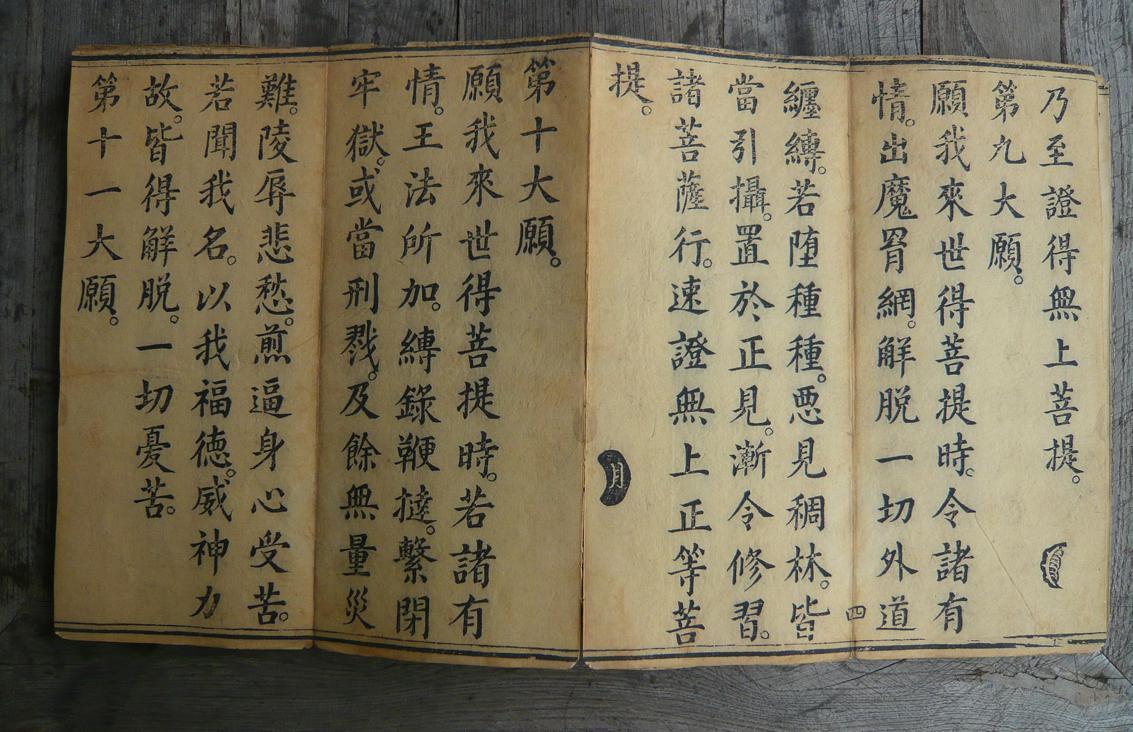 乃至證得無上菩提。
第九大願。
願我來世得菩提時。令諸有
情。出魔罥網。解脫一切外道
纏縛。若墮種種。惡見稠林。皆
當引攝。置於正見。漸令修習。
諸菩薩行。速證無上正等菩
提。
第十大願。
願我來世得菩提時。若諸有
情。王法所加。縛錄鞭撻。繫閉
牢獄。或當刑戮。及餘無量災
難。陵辱悲愁。煎逼身心受苦。
若聞我名。以我福德。威神力
故。皆得解脫。一切憂苦。
第十一大願。
四
月